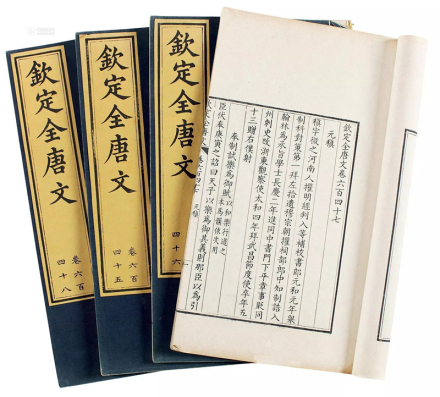 欽定全唐文卷六百四十七
元稹
稹字微之河南人擢明經判入等補校書郎元和元年舉
制科對策第一拜左拾遺穆宗朝擢祠部郎中知制誥入
翰林為承旨學士長慶二年進同中書門下平章事貶同
州刺史改浙東觀察使太和四年拜武昌節度使卒年五
十三贈右僕射
奉制試樂為御賦以和樂行道之本為韻依次用
臣伏奉庚寅之詔曰天子以樂為御其義則那臣以為引
欽定全唐文
元稹
欽定全唐文
卷六百
四十六
欽定全唐文
卷六百
四十五
欽定全唐文
卷六百
四十八